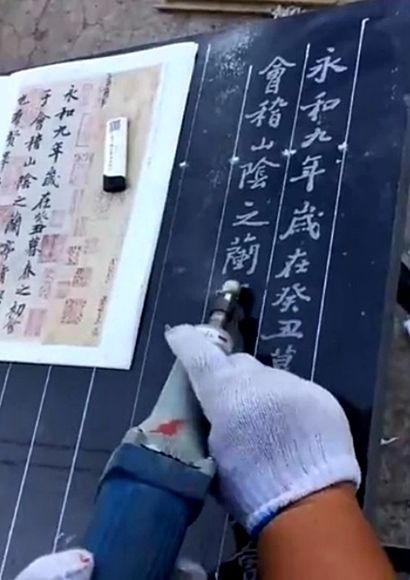 永和九年歲在癸丑暮
會稽山陰之蘭
永和九年歲在癸丑暮春之初會
于會稽山陰之蘭亭